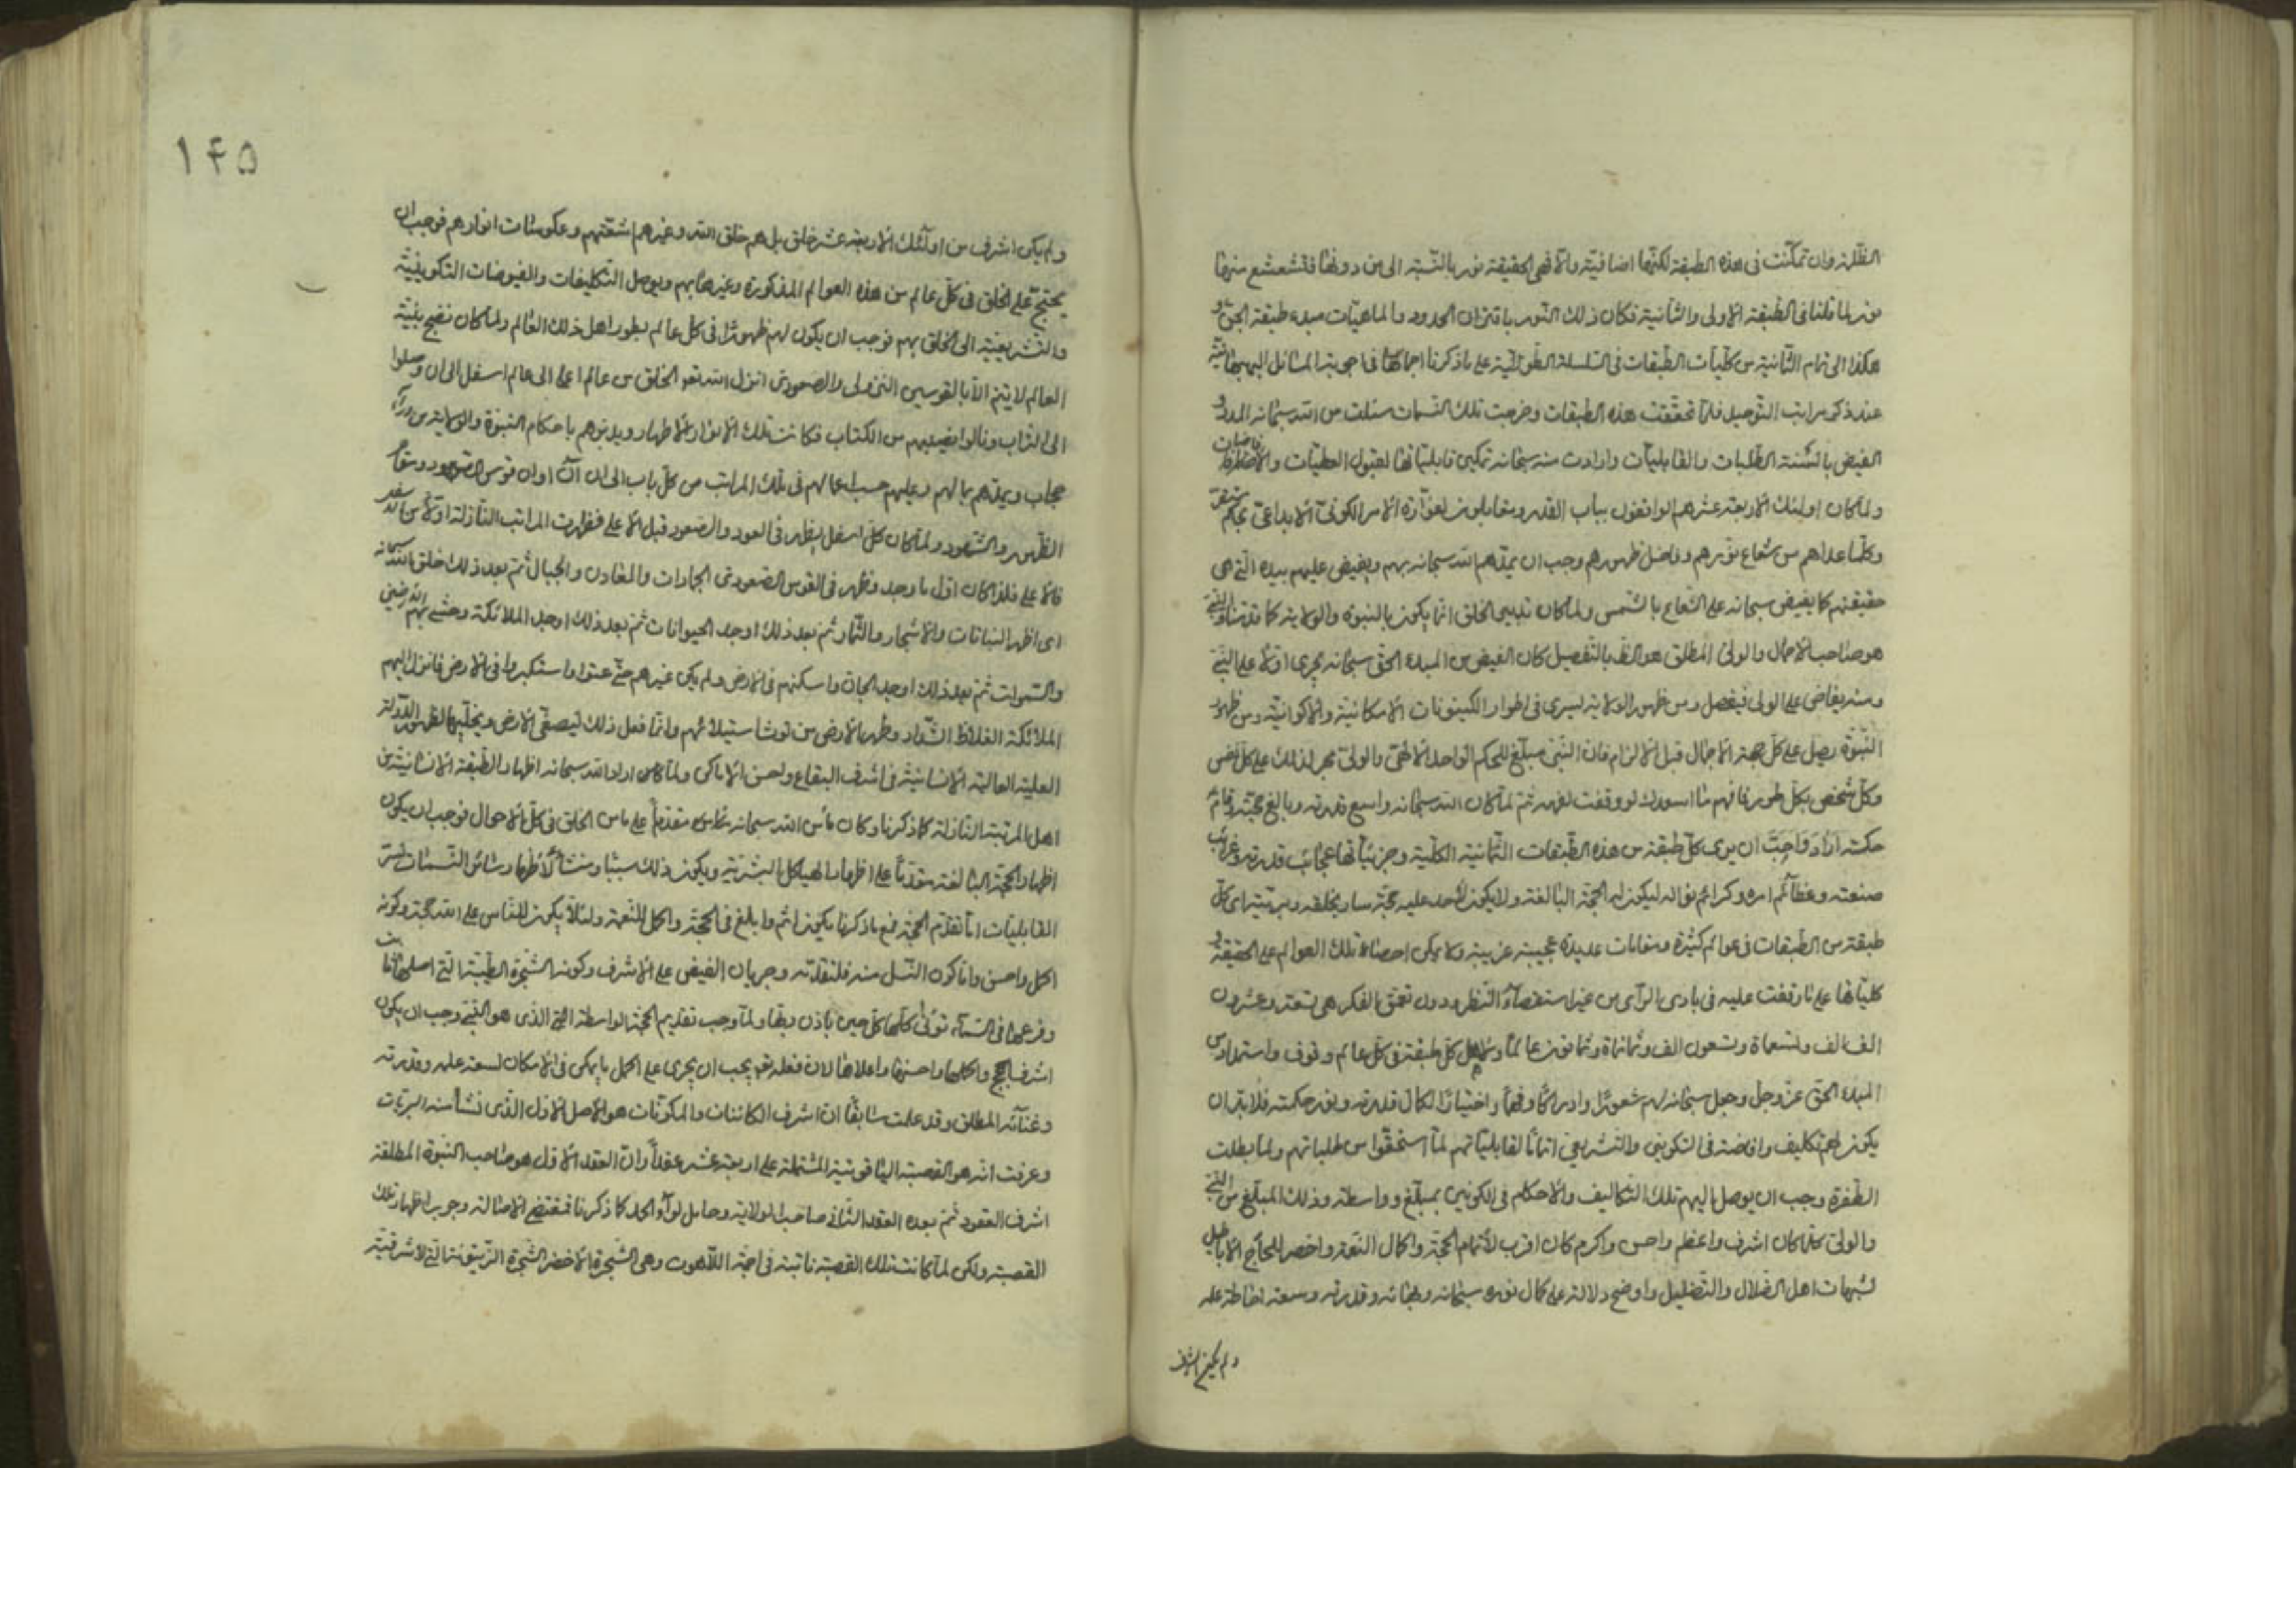 الظلمة وان تمكّنت فی هذه الطبقة لكنّها اضافیة والّا فهی الحقیقة نور بالنّسبة الی من دونها فتشعشع منها
نور لما قلنا فی الطّبقة الاولی والثّانیة فكان ذلك النّور باقتران الحدود والماهیّات مبدء طبقة الجنّ و
هكذا الی تمام الثّمانیة من كلّیات الطّبقات فی السّلسلة الطّولیّة علی ما ذكرنا اجمالها فی اجوبة المسائل
عند ذكر مراتب التّوحید فلمّا تحقّقت هذه الطبقات وخرجت تلك النّسمات سئلت من الله سبحانه المدد و
الفیض بالسنة الطّلبات والقابلیّات وارادت منه سبحانه تمكین قابلیّاتها لقبول العطیّات والافاضات
ولمّا كان اولئك الاربعة عشر هم الواقفون بباب القدر ویقابلون لفوّارة الامر الكونیّ الابداعیّ
وكلّما عداهم من شعاع نورهم وفاضل ظهورهم وجب ان یمدّهم الله سبحانه بهم ویفیض علیهم بیده الّتی هی
حقیقتهم كما یفیض سبحانه علی الشّعاع بالشّمس ولمّا كان تدبیر الخلق انّما یكون بالنبوة والولایة كما قدّمنا والنّبیّ
هو صاحب الاجمال والولیّ المطلق هو الظّ بالتّفصیل كان الفیض من المبدء الحقّ سبحانه یجری اوّلا علی النّبیّ
ومنه یفاض علی الولی فیفصل ومن ظهور الولایة یسری فی اطوار الكینونات الامكانیّة والاكوانیّة ومن ظهور
النّبوّة یصل علی كلّ جهة الاجمال قبل الالزام فانّ النّبیّ مبلّغ للحكم الواحد الالهیّ والولیّ مجر لذلك علی كلّ نفس
وكلّ شخص بكلّ طور فافهم فلمّا كان الله سبحانه واسع قدرته وبالغ حجّته
حكمته اراد واحبّ ان یری كلّ طبقة من هذه الطّبقات الثّمانیة الكلّیة وجزئیّاتها عجائب قدرته وغرائب
صنعته وعظآئم امره وكرائم نواله لیكون له الحجّة البالغة ولا یكون لاحد علیه حجّة سار بخلقه وبریّته ای كلّ
طبقة من الطّبقات فی عوالم كثیرة ومقامات عدیدة عجیبة غریبة ولا یمكن احصاء تلك العوالم علی الحقیقة و
كلّیاتها علی ما وقفت علیه فی بادی الرّأی من غیر استقصآء النّظر ودون تعمّق الفكر هی تسعة وعشرون
الف الف وتسعماة وتسعون الف وثمانماة وثمانون عالماً ولاهل كلّ طبقة فی كلّ عالم وقوف واستمداد من
المبدء الحقّ عزّ وجلّ وجعل سبحانه لهم شعورًا وادراكًا وفهمًا واختیارًا لكمال قدرته ونور حكمته فلا بدّ ان
یكون لهم تكلیف وافاضة فی التّكوینی والتّشریعی اتمامًا لقابلیّاتهم لمّا استحقّوا من طلباتهم ولمّا بطلت
الطّفرة وجب ان یوصل الیهم تلك التّكالیف والاحكام فی الكونین بمبلّغ وواسطة وذلك المبلّغ من النّبیّ
والولیّ كلّما كان اشرف واعظم واحسن واكرم كان اقرب لاتمام الحجّة واكمال النّعمة واخصر للحآج الاباطیل
لشبهات اهل الضّلال والتّضلیل واوضح دلالة علی كمال نوره سبحانه وبهائه وقدرته وسعة احاطة علمه
ولم یكن اشرف
۱۴۵
ولم یكن اشرف من اولٰئك الاربعة عشر خلق بل هم خلق الله وغیرهم اشعّتهم وعكوسات انوارهم فوجب ان
یحتجّ علی الخلق فی كلّ عالم من هذه العوالم المذكورة وغیرها بهم ویوصل التّكلیفات والفیوضات التّكوینیّة
والتّشریعیّة الی الخلق بهم فوجب ان یكون لهم ظهورًا فی كلّ عالم بطور اهل ذلك العالم ولمّا كان نضج بنیة
العالم لا یتمّ الّا بالقوسین النّزولی والصعودی انزل الله تعو الخلق من عالم اعلی الی عالم اسفل الی ان وصلوا
الی التّراب ونالوا نصیبهم من الكتاب فكانت تلك الانوار الاطهار ویدبّرهم باحكام النّبوّة والولایة من ورآء
حجاب ویمدّهم بما لهم وعلیهم حسب اعمالهم فی تلك المراتب من كلّ باب الی ان آن اوان قوس الصّعود ومقام
الظّهور والشّهود ولمّا كان كلّ اسفل یظهر فی العود والصّعود قبل الاعلی فظهرت المراتب النّازلة اوّلا
فالاعلی فلذا كان اوّل ما وجد وظهر فی القوس الصّعودی الجمادات والمعادن والجبال ثمّ بعد ذلك خلق الله سبحانه
ای اظهر النباتات والاشجار والثّمار ثمّ بعد ذلك اوجد الحیوانات ثمّ بعد ذلك اوجد الملائكة وحشی بهم الارضین
والسّموات ثمّ بعد ذلك اوجد الجانّ واسكنهم فی الارض ولم یكن غیرهم حتّی عتوا واستكبروا فی الارض فانزل الیهم
الملائكة الغلاظ الشّداد وطهر الارض من لوث استیلائهم وانّما فعل ذلك لیصفّی الارض ویخلّیها لظهور الدّولة
العلیة العالیة الانسانیّة فی اشرف البقاع واحسن الاماكن ولمّا اراد الله سبحانه اظهار الطّبقة الانسانیّة من
اهل المرتبة النّازلة كما ذكرنا وكان مقدّما علی الخلق فی كلّ الاحوال فوجب ان یكون
اظهار الحجّة البالغة مقدّمًا علی اظهار الهیاكل البشریّة ویكون ذلك سببًا ومنشأً لاظهار سائر النّسمات
القابلیّات امّا تقدّم الحجّة فمع ما ذكرنا یكون اتمّ وابلغ فی الحجّة واكمل للنّعمة ولئلّا یكون للنّاس علی الله حجّة وكونه
اكمل واحسن وامّا كون النّسل منه فلتقدّمه وجریان الفیض علی الاشرف وكونه الشّجرة الطّیّبة الّتی اصلها ثابت
وفرعها فی السّمآء تؤتی اكلها كلّ حین باذن ربّها ولمّا وجب تقدیم الحجّة الواسطة الّذی هو النّبی وجب ان یكون
اشرف الحجج واكملها واحسنها واعلاها لانّ فعله تعو یجب ان یجری علی اكمل ما یمكن فی الامكان لسعة علمه وقدرته
وغنآئه المطلق وقد علمت سابقًا انّ اشرف الكائنات والمكوّنات هو الاصل الاوّل الّذی نشأ منه البریّات
وعرفت انّه هو القصبة الیاقوتیة المشتملة علی اربعة عشر عقداً وانّ العقد الاوّل هو صاحب النّبوّة المطلقة
اشرف العقود ثمّ بعده العقد الثّانی صاحب الولایة وحامل لوآء الحمد كما ذكرنا فمقتضی الاصالة وجوب اظهار تلك
القصبة ولكن لمّا كانت تلك القصبة نابتة فی اجمة اللّاهوت وهی الشّجرة الاخضر الشّجرة الزّیتونة الّتی لا شرقیّة